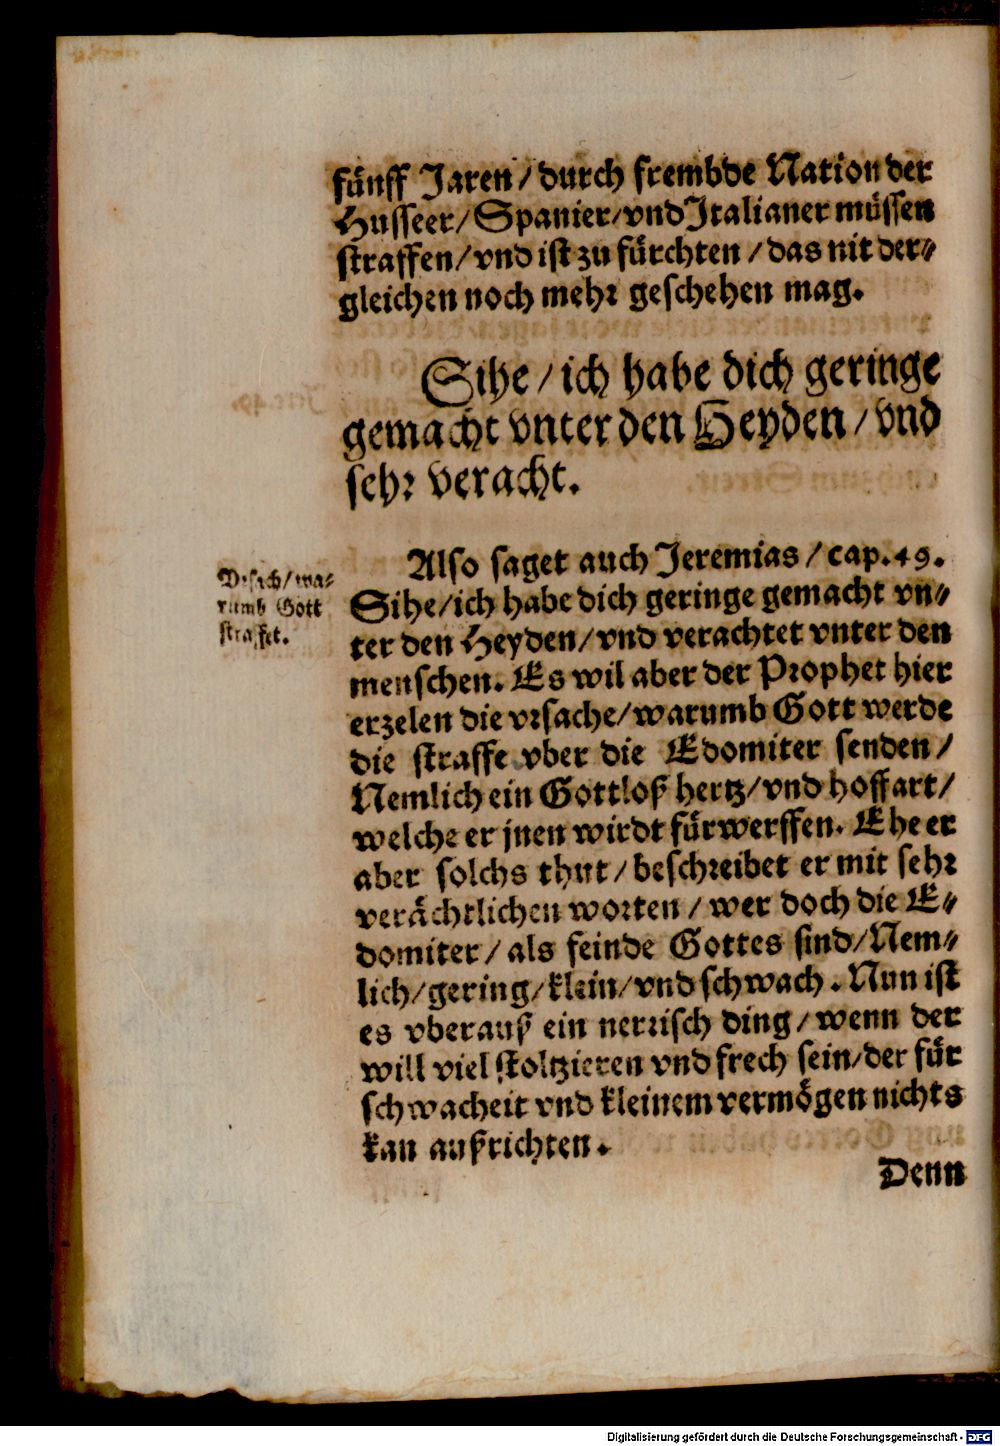 fünff Jaren/durch frembde Nation der
Husseer/Spanier/vnd Italianer müssen
straffen/vnd ist zu fürchten/das nit der⸗
gleichen noch mehr geschehen mag.
Sihe/ich habe dich geringe
gemacht vnter den Heyden/vnd
sehr veracht.
Vrsach/wa⸗
rumb Gott
straffet.
Also saget auch Jeremias/cap.49.
Sihe/ich habe dich geringe gemacht vn⸗
ter den Heyden/vnd verachtet vnter den
menschen. Es wil aber der Prophet hier
erzelen die vrsache/warumb Gott werde
die straffe vber die Edomiter senden/
Nemlich ein Gottloß hertz/vnd hoffart/
welche er jnen wirdt fürwerffen. Ehe er
aber solchs thut/beschreibet er mit sehr
verächtlichen worten/wer doch die E⸗
domiter/als feinde Gottes sind/Nem⸗
lich/gering/klein/vnd schwach. Nun ist
es vberauß ein nerrisch ding/wenn der
will viel stoltzieren vnd frech sein/der für
schwacheit vnd kleinem vermögen nichts
kan außrichten.
Denn
Digitalisierung gefördert durch die Deutsche Forschungsgemeinschaft - DFG